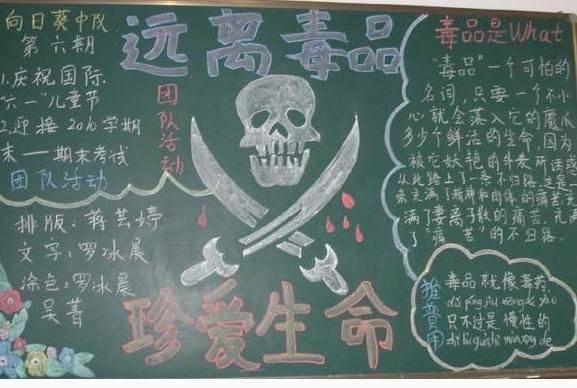 向日葵中队
第六期
远离毒品
1.庆祝国际
六一儿童节
2.迎接2010学期
末——期末考试
团队活动
团队活动
排版:蒋芸婷
文字:罗冰晨
涂色:罗冰晨
吴菁
珍爱生命
毒品是What
"毒品"一个可怕的
名词,只要一个不小
心就会落入它的魔爪
多少个鲜活的生命,因为
被它妖艳的外表所诱惑
从此踏上了一条不归路,这是一
条充满了精神和肉体的痛苦,充
满了妻离子散的痛苦,充满
了"痛苦"的不归路.
毒品就像毒药,
dú pǐn jiù xiàng dú yào
只不过是慢性的
zhǐ bù guò shì màn xìng de